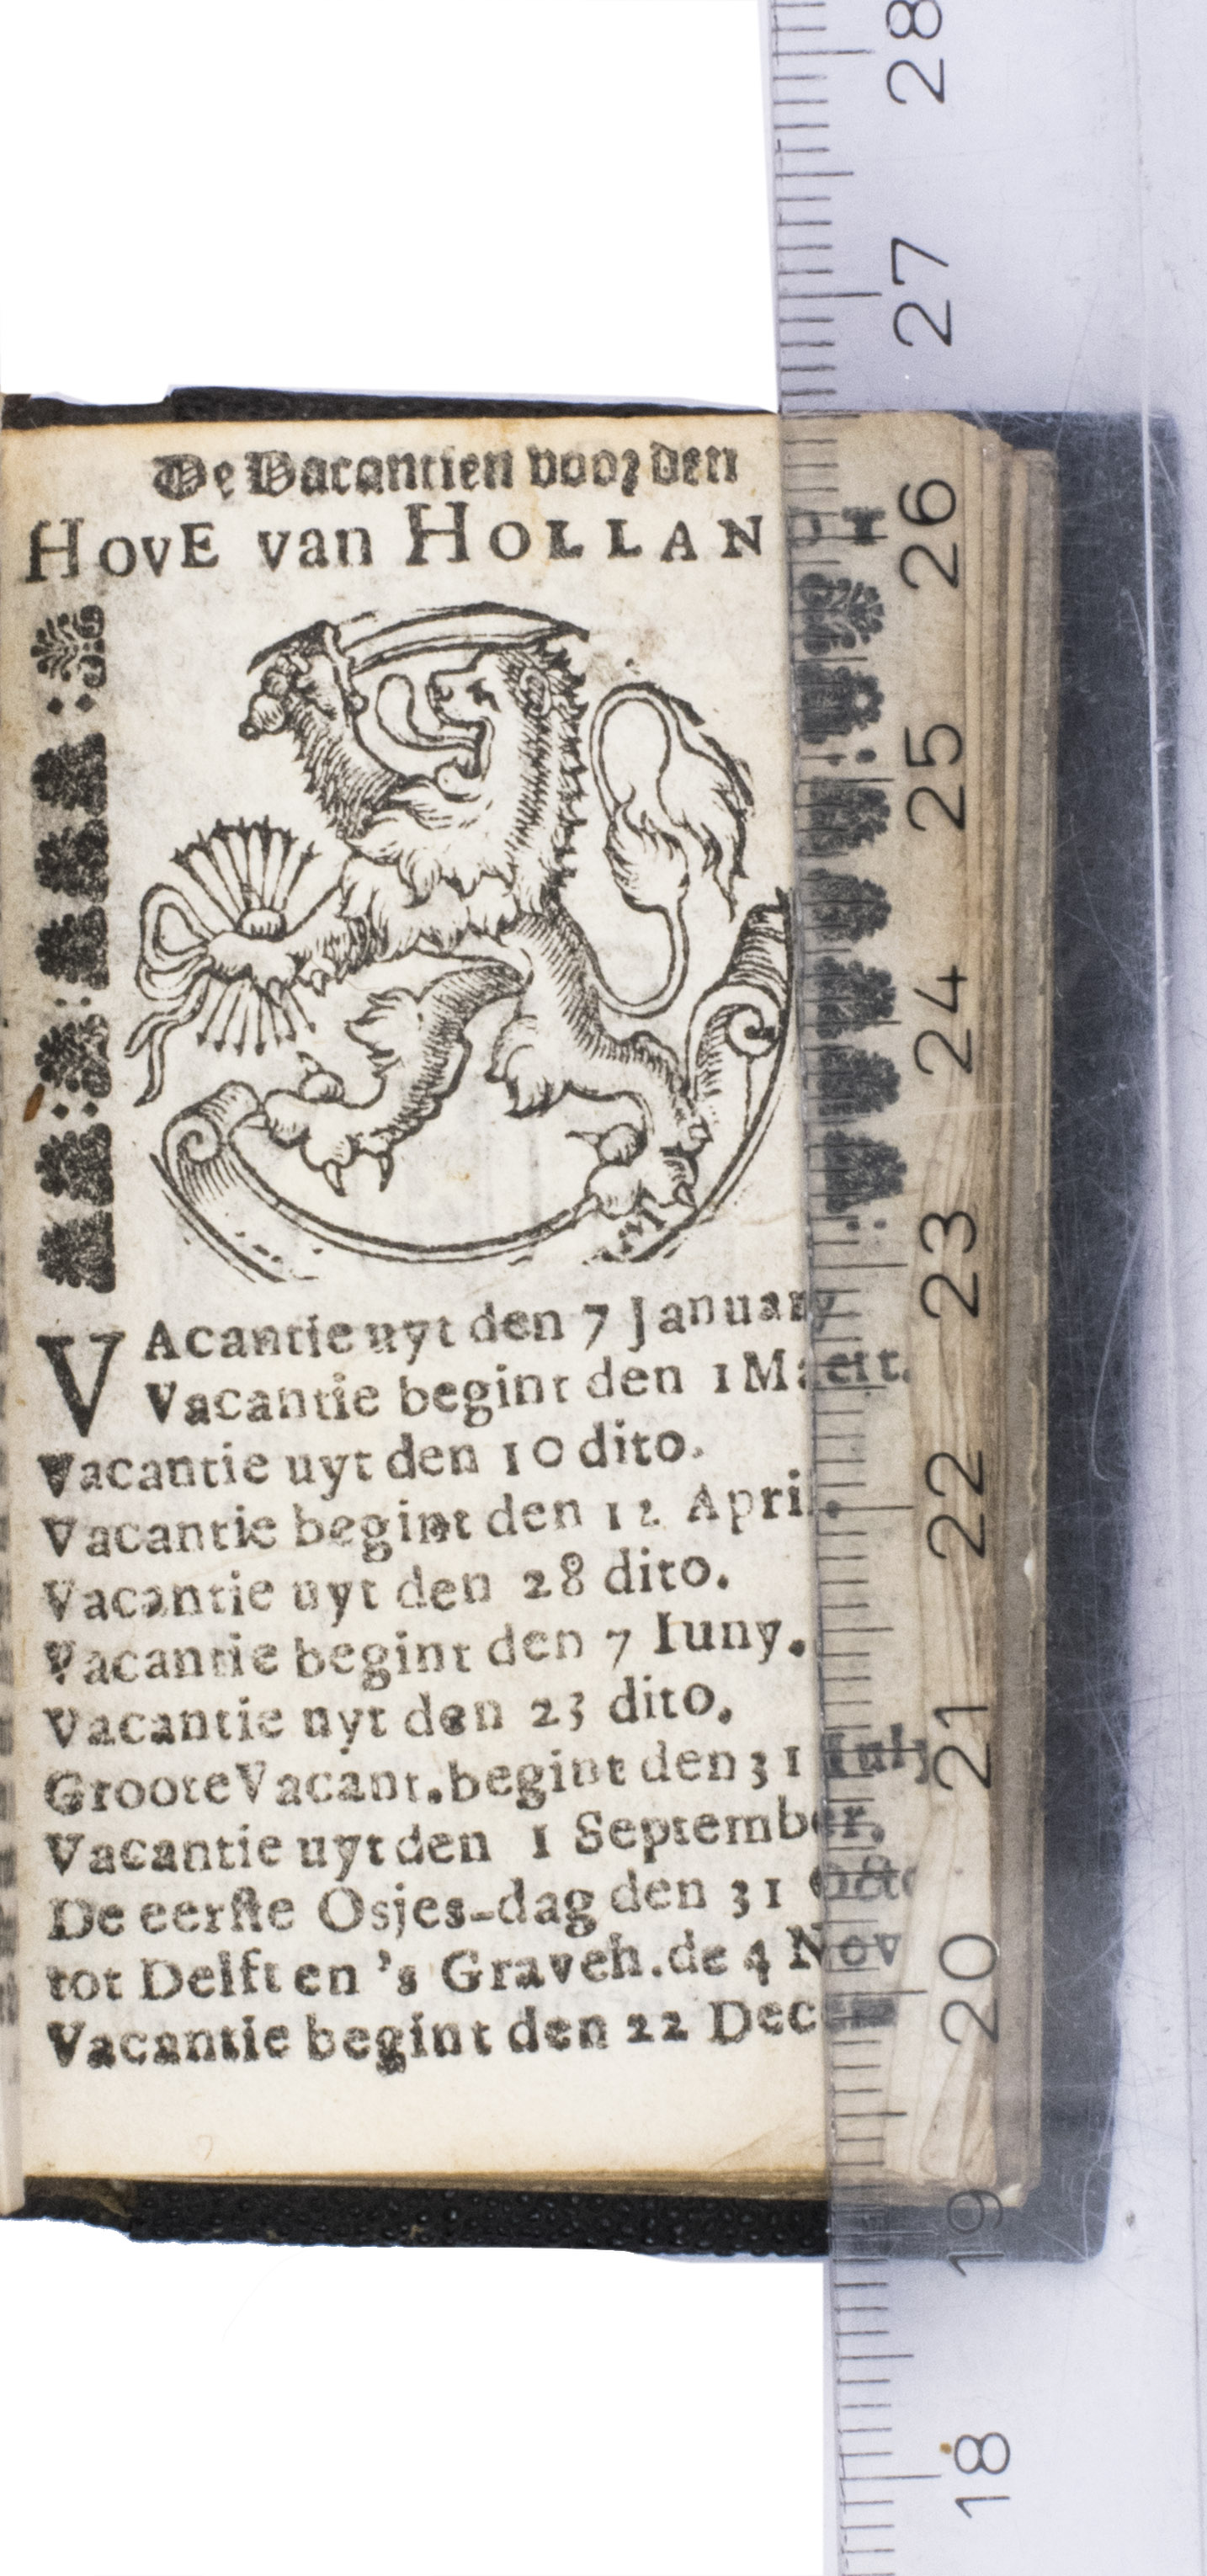 De Vacantien voor den
HovE van HOLLAN
VAcantie uyt den 7 January
Vacantie begint den 1 Maert.
Vacantie uyt den 10 dito.
Vacantie begint den 12 April.
Vacantie uyt den 28 dito.
Vacantie begint den 7 Iuny.
Vacantie uyt den 23 dito.
Groote Vacant. begint den 31 July
Vacantie uyt den 1 September.
De eerste Osjes-dag den 31 Octo
tot Delft en 's Graveh. de 4 Nov
Vacantie begint den 22 Dec
28
27
26
25
24
23
22
21
20
19
18